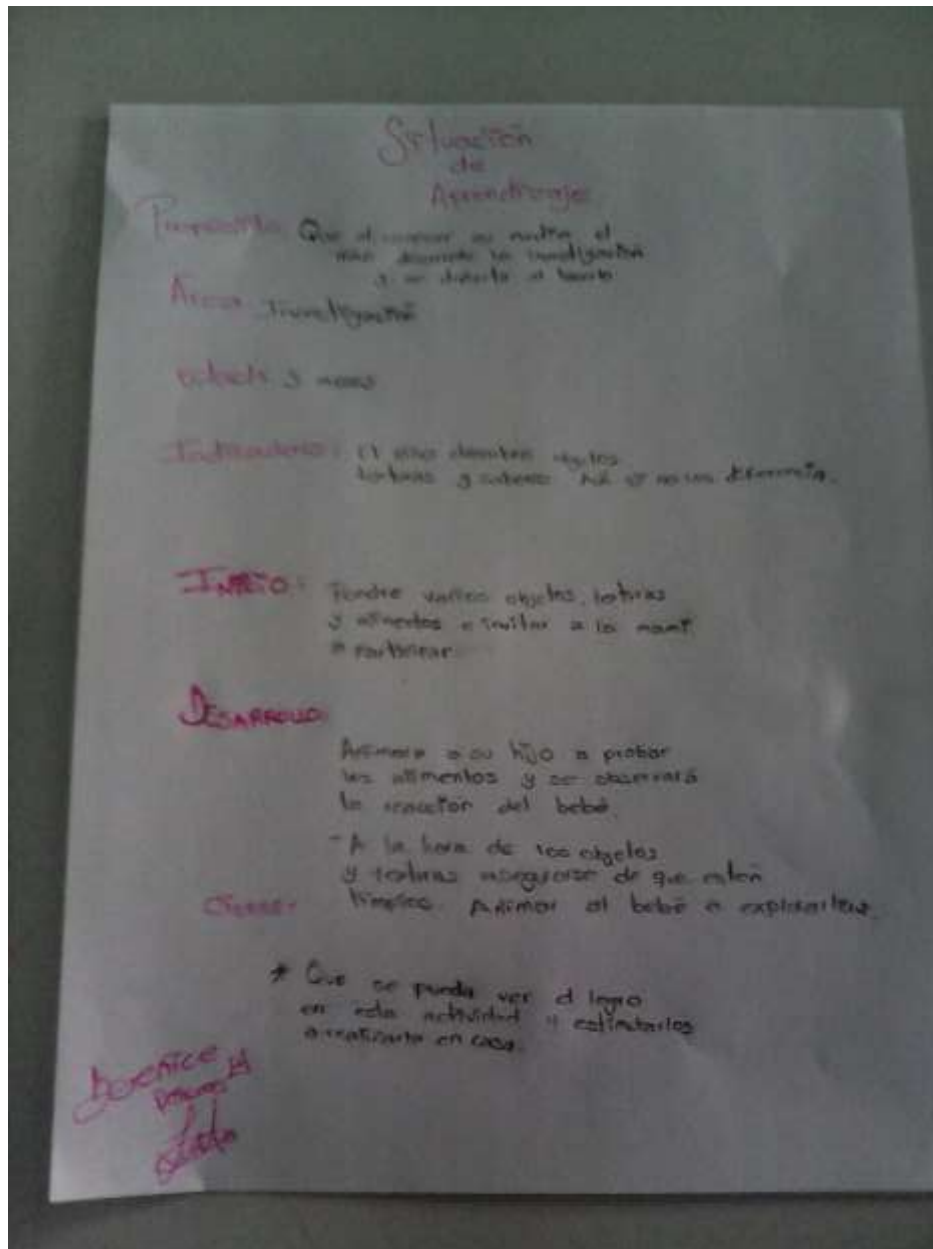 Situación
de
Aprendizaje
Proposito: Que al conocer su medio el
niño desarrolle la investigación
y se divierta al hacerlo
Area: Investigación
Edad: 9 meses
Indicadores: El niño descubre objetos
texturas y sabores
INICIO: Pondre varios objetos, texturas
y alimentos e invitar a la mamí
a participar.
DESARROLLO:
Animara a su hijo a probar
los alimentos y se observará
la reacción del bebé.
- A la hora de los objetos
y texturas asegurarse de que esten
Cierre: limpios. Animar al bebé a explorarlos.
* Que se pueda ver el logro
en esta actividad y estimularlos
a realizarla en casa.
Berenice